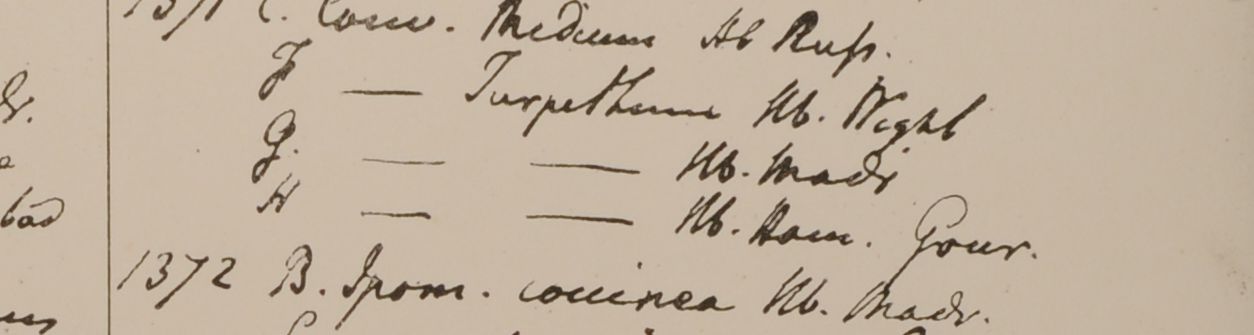 1371 C. Conv. Medium Hb Russ.
F — Turpethum Hb. Wight
G. — — Hb. Madr
H — — Hb. Ham. Gour.
1372 B. Ipom. coccinea Hb. Madr.